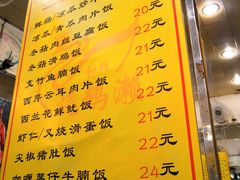 鲜菇/凉瓜炒
凉瓜/青瓜肉片饭 20元
冬菇肉丝豆腐饭 20元
冬菇滑鸡饭 22元
支竹鱼腩饭 21元
西芹云耳肉片饭 21元
西兰花鲜鱿饭 21元
虾仁/叉烧滑蛋饭 21元
尖椒猪肚饭 22元
咖喱薯仔牛腩饭 24元